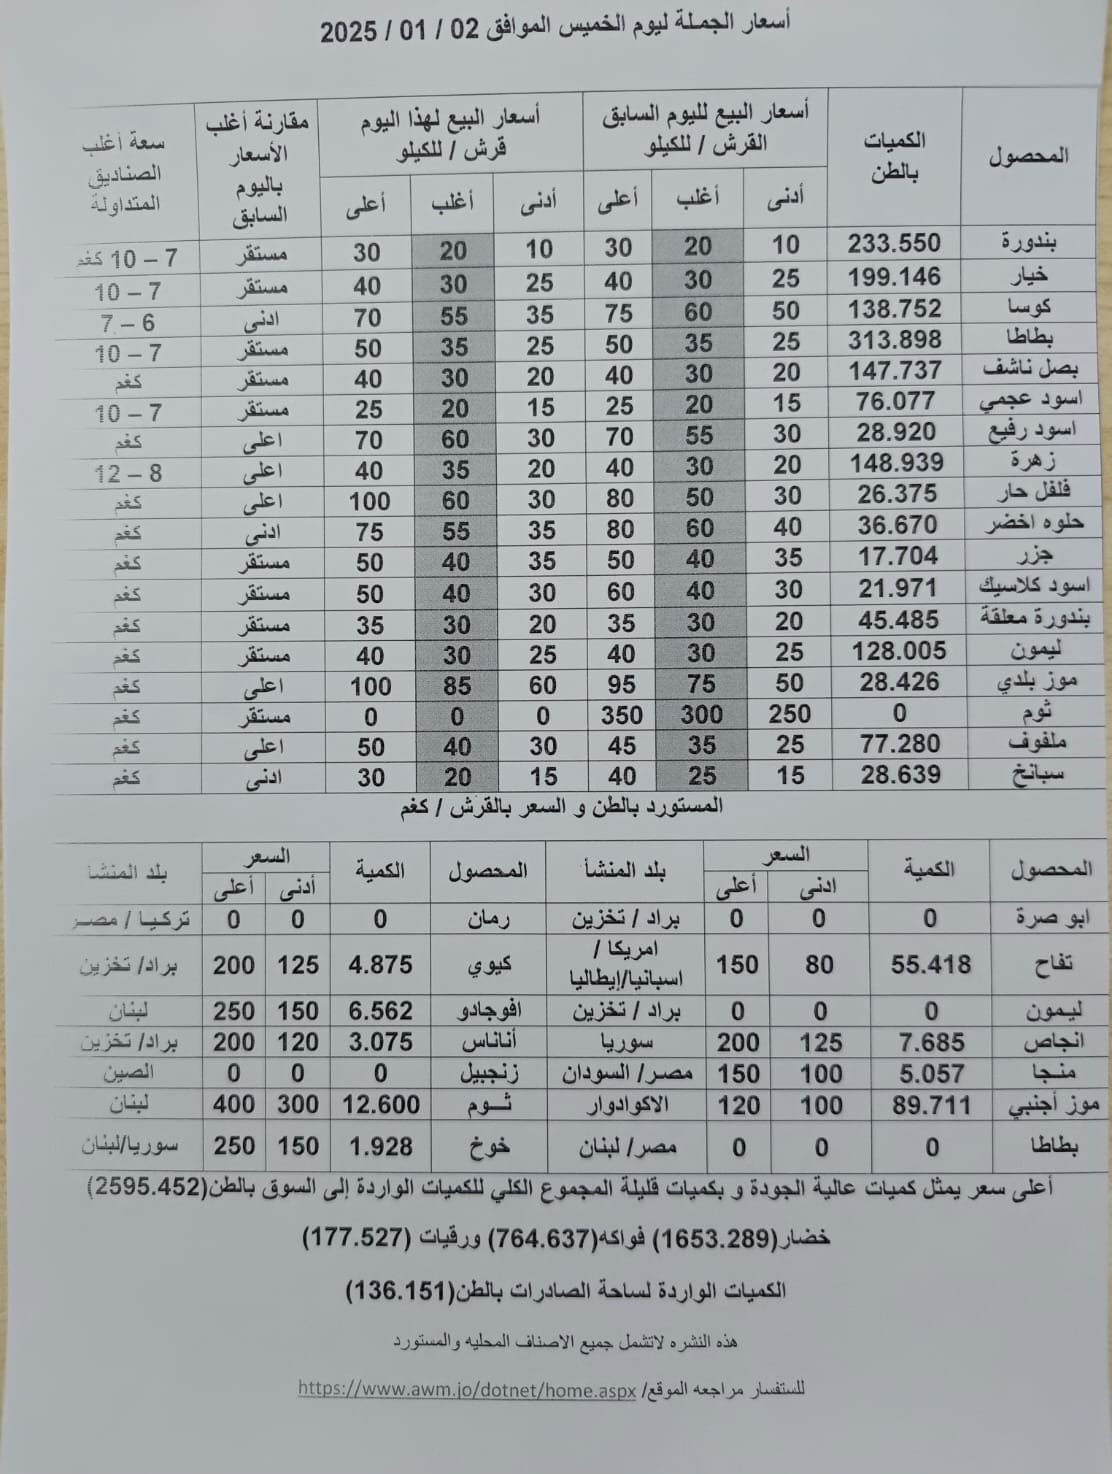 أسعار الجملة ليوم الخميس الموافق 02 / 01 / 2025
المحصول | الكميات بالطن | أسعار البيع لليوم السابق القرش / للكيلو | أسعار البيع لهذا اليوم قرش / للكيلو | مقارنة أغلب الأسعار باليوم السابق | سعة أغلب الصناديق المتداولة
أدنى | أغلب | أعلى | أدنى | أغلب | أعلى
بندورة | 233.550 | 10 | 20 | 30 | 10 | 20 | 30 | مستقر | 7 – 10 كغم
خيار | 199.146 | 25 | 30 | 40 | 25 | 30 | 40 | مستقر | 7 – 10
كوسا | 138.752 | 50 | 60 | 75 | 35 | 55 | 70 | ادنى | 6 – 7
بطاطا | 313.898 | 25 | 35 | 50 | 25 | 35 | 50 | مستقر | 7 – 10
بصل ناشف | 147.737 | 20 | 30 | 40 | 20 | 30 | 40 | مستقر | كغم
اسود عجمي | 76.077 | 15 | 20 | 25 | 15 | 20 | 25 | مستقر | 7 – 10
اسود رفيع | 28.920 | 30 | 55 | 70 | 30 | 60 | 70 | اعلى | كغم
زهرة | 148.939 | 20 | 30 | 40 | 20 | 35 | 40 | اعلى | 8 – 12
فلفل حار | 26.375 | 30 | 50 | 80 | 30 | 60 | 100 | اعلى | كغم
حلوه اخضر | 36.670 | 40 | 60 | 80 | 35 | 55 | 75 | ادنى | كغم
جزر | 17.704 | 35 | 40 | 50 | 35 | 40 | 50 | مستقر | كغم
اسود كلاسيك | 21.971 | 30 | 40 | 60 | 30 | 40 | 50 | مستقر | كغم
بندورة معلقة | 45.485 | 20 | 30 | 35 | 20 | 30 | 35 | مستقر | كغم
ليمون | 128.005 | 25 | 30 | 40 | 25 | 30 | 40 | مستقر | كغم
موز بلدي | 28.426 | 50 | 75 | 95 | 60 | 85 | 100 | اعلى | كغم
ثوم | 0 | 250 | 300 | 350 | 0 | 0 | 0 | مستقر | كغم
ملفوف | 77.280 | 25 | 35 | 45 | 30 | 40 | 50 | اعلى | كغم
سبانخ | 28.639 | 15 | 25 | 40 | 15 | 20 | 30 | ادنى | كغم
المستورد بالطن و السعر بالقرش / كغم
المحصول | الكمية | السعر | بلد المنشأ | المحصول | الكمية | السعر | بلد المنشا
ادنى | أعلى | أدنى | أعلى
ابو صرة | 0 | 0 | 0 | براد / تخزين | رمان | 0 | 0 | 0 | تركيا / مصر
تفاح | 55.418 | 80 | 150 | امريكا / اسبانيا/إيطاليا | كيوي | 4.875 | 125 | 200 | براد/ تخزين
ليمون | 0 | 0 | 0 | براد / تخزين | افوجادو | 6.562 | 150 | 250 | لبنان
انجاص | 7.685 | 125 | 200 | سوريا | أناناس | 3.075 | 120 | 200 | براد/ تخزين
منجا | 5.057 | 100 | 150 | مصر/ السودان | زنجبيل | 0 | 0 | 0 | الصين
موز أجنبي | 89.711 | 100 | 120 | الاكوادوار | ثوم | 12.600 | 300 | 400 | لبنان
بطاطا | 0 | 0 | 0 | مصر/ لبنان | خوخ | 1.928 | 150 | 250 | سوريا/لبنان
أعلى سعر يمثل كميات عالية الجودة و بكميات قليلة المجموع الكلي للكميات الواردة إلى السوق بالطن(2595.452)
خضار(1653.289) فواكه(764.637) ورقيات (177.527)
الكميات الواردة لساحة الصادرات بالطن(136.151)
هذه النشره لاتشمل جميع الاصناف المحليه والمستورد
للستفسار مراجعه الموقع/ https://www.awm.jo/dotnet/home.aspx